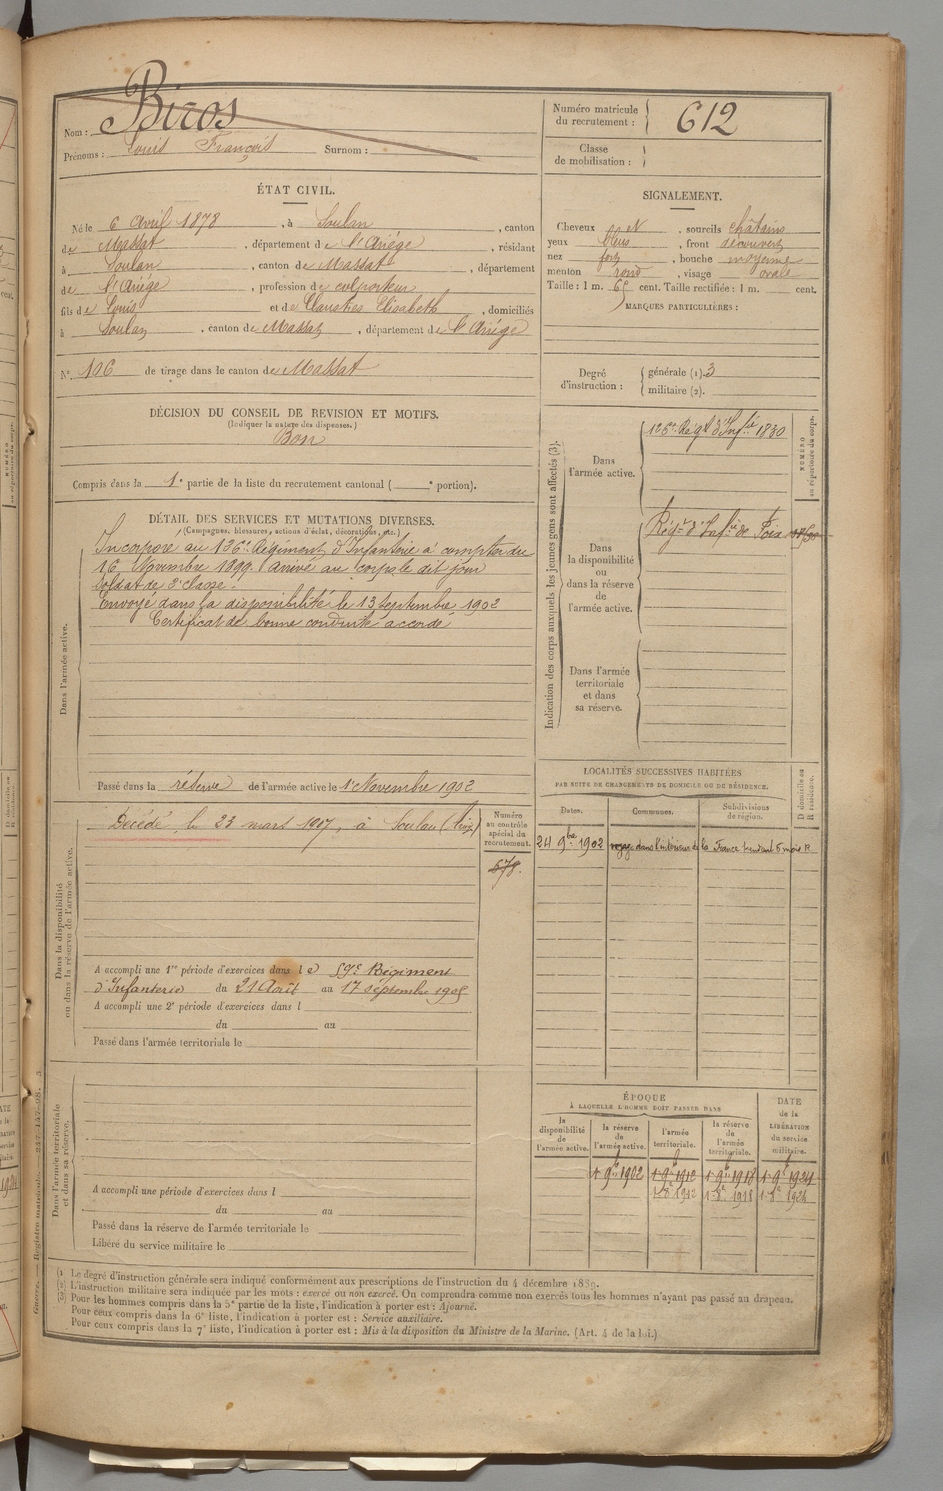 Nom : Biros
Prénoms : Louis François Surnom :
Numéro matricule du recrutement : 612
Classe de mobilisation :
ÉTAT CIVIL.
Né le 6 Avril 1878, à Soulan, canton
de Massat, département de l'Ariége, résidant
à Soulan, canton de Massat, département
de l'Ariége, profession de colporteur
fils de Louis et de Claustres Elisabeth, domiciliés
à Soulan, canton de Massat, département de l'Ariége
N° 106 de tirage dans le canton de Massat
SIGNALEMENT.
Cheveux N, sourcils châtains
yeux bleus, front découvert
nez fort, bouche moyenne
menton rond, visage ovale
Taille : 1 m. 65 cent. Taille rectifiée : 1 m. cent.
MARQUES PARTICULIÈRES :
Degré d'instruction : générale (1). 3
militaire (2).
DÉCISION DU CONSEIL DE REVISION ET MOTIFS.
(Indiquer la nature des dispenses.)
Bon
Compris dans la 1e partie de la liste du recrutement cantonal ( e portion).
DÉTAIL DES SERVICES ET MUTATIONS DIVERSES.
(Campagnes, blessures, actions d'éclat, décorations, etc.)
Dans l'armée active.
Incorporé au 126e Régiment d'Infanterie à compter du
16 Novembre 1899. Arrivé au corps le dit jour
soldat de 2e classe.
Envoyé dans la disponibilité le 13 Septembre 1902
Certificat de bonne conduite accordé
Passé dans la réserve de l'armée active le 1er Novembre 1902
Indication des corps auxquels les jeunes gens sont affectés (3).
NUMÉRO au répertoire du corps.
Dans l'armée active. 126e Régt d'Infie 1830
Dans la disponibilité ou dans la réserve de l'armée active. Régt d'Infie de Foix
Dans l'armée territoriale et dans sa réserve.
LOCALITÉS SUCCESSIVES HABITÉES
PAR SUITE DE CHANGEMENTS DE DOMICILE OU DE RÉSIDENCE.
Dates. Communes. Subdivisions de région. D domicile ou R résidence.
24 9bre 1902 voyage dans l'intérieur de la France pendant 6 mois R
Dans la disponibilité ou dans la réserve de l'armée active.
Numéro au contrôle spécial du recrutement.
678.
Décédé, le 23 mars 1907, à Soulan (Ariège)
A accompli une 1re période d'exercices dans le 59e Régiment
d'Infanterie du 21 Août au 17 septembre 1905
A accompli une 2e période d'exercices dans l
du au
Passé dans l'armée territoriale le
Dans l'armée territoriale et dans sa réserve.
A accompli une période d'exercices dans l
du au
Passé dans la réserve de l'armée territoriale le
Libéré du service militaire le
ÉPOQUE
À LAQUELLE L'HOMME DOIT PASSER DANS
la disponibilité de l'armée active. la réserve de l'armée active. l'armée territoriale. la réserve de l'armée territoriale.
DATE de la LIBÉRATION du service militaire.
1 9bre 1902 1 9bre 1912 1 9bre 1918 1 9bre 1924
1 8bre 1912 1 8bre 1918 1 8bre 1924
(1) Le degré d'instruction générale sera indiqué conformément aux prescriptions de l'instruction du 4 décembre 1889.
(2) L'instruction militaire sera indiquée par les mots : exercé ou non exercé. On comprendra comme non exercés tous les hommes n'ayant pas passé au drapeau.
(3) Pour les hommes compris dans la 5e partie de la liste, l'indication à porter est : Ajourné.
Pour ceux compris dans la 6e liste, l'indication à porter est : Service auxiliaire.
Pour ceux compris dans la 7e liste, l'indication à porter est : Mis à la disposition du Ministre de la Marine. (Art. 4 de la loi.)